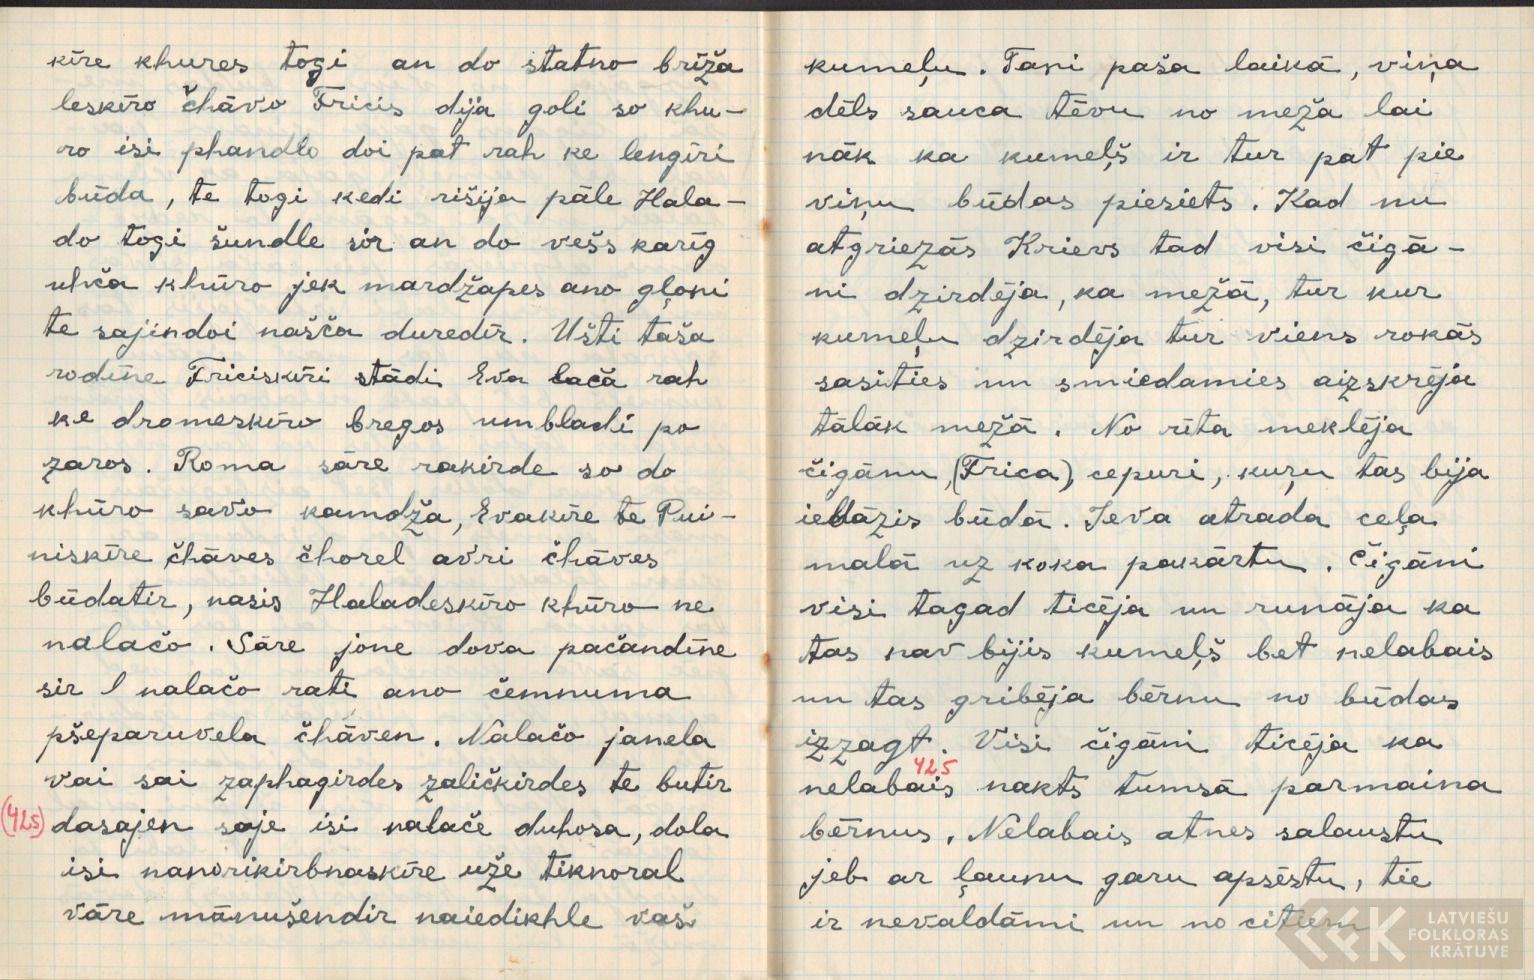 kīre khures togi an do statno brīža
leskīro čhāvo Fricis dija goli so khu-
ro isi phandlo doi pat rah ke lengīri
būda, te togi kedi rišija pāle Hala-
do togi šundle sir an do vešs karīg
uhča khūro jek mardžapes ano gļoni
te sajindoi našča duredīr. Ušti taša
rodīne Friciskīri stādi Eva lačā rah
ke dromeskīro bregos umbladi po
zaros. Roma sāre rakirde so do
khūro savo kamdža, Evakīre te Pui-
niskīre čhāves čhorel avri čhāves
būdatir, nasis Haladeskīro khūro ne
nalačo. Sāre jone dova pačandīne
sir I nalačo rati ano čemnuma
pšeparuvela čhāven. Nalačo janela
vai sai zaphagirdes zaličkirdes te butir
(425) dasajen saje isi nalače duhosa, dola
isi nanorikirbnaskīre uže tiknoral
vāre mānušendir naiedikhle vaš
kumeļu. Tani paša laikā, viņa
dēls sauca tēvu no meža lai
nāk ka kumeļš ir tur pat pie
viņu būdas piesiets. Kad nu
atgriezās Krievs tad visi čigā-
ni dzirdēja, ka mežā, tur kur
kumeļu dzirdēja tur viens rokās
sasities un smiedamies aizskrēja
tālāk mežā. No rīta meklēja
čigānu, (Frica), cepuri, kuŗu tas bija
ieblāzis būdā. Ieva atrada ceļa
malā uz koka pakārtu. Čigāni
visi tagad ticēja un runāja ka
tas nav bijis kumeļš bet nelabais
un tas gribēja bērnu no būdas
izzagt. Visi čigāni ticēja ka
425
nelabais nakts tumsā parmaina
bērnus. Nelabais atnes salaustu
jeb ar ļaunu garu apsēstu, tie
ir nevaldāmi un no citiem
LATVIEŠU
FOLKLORAS
KRĀTUVE